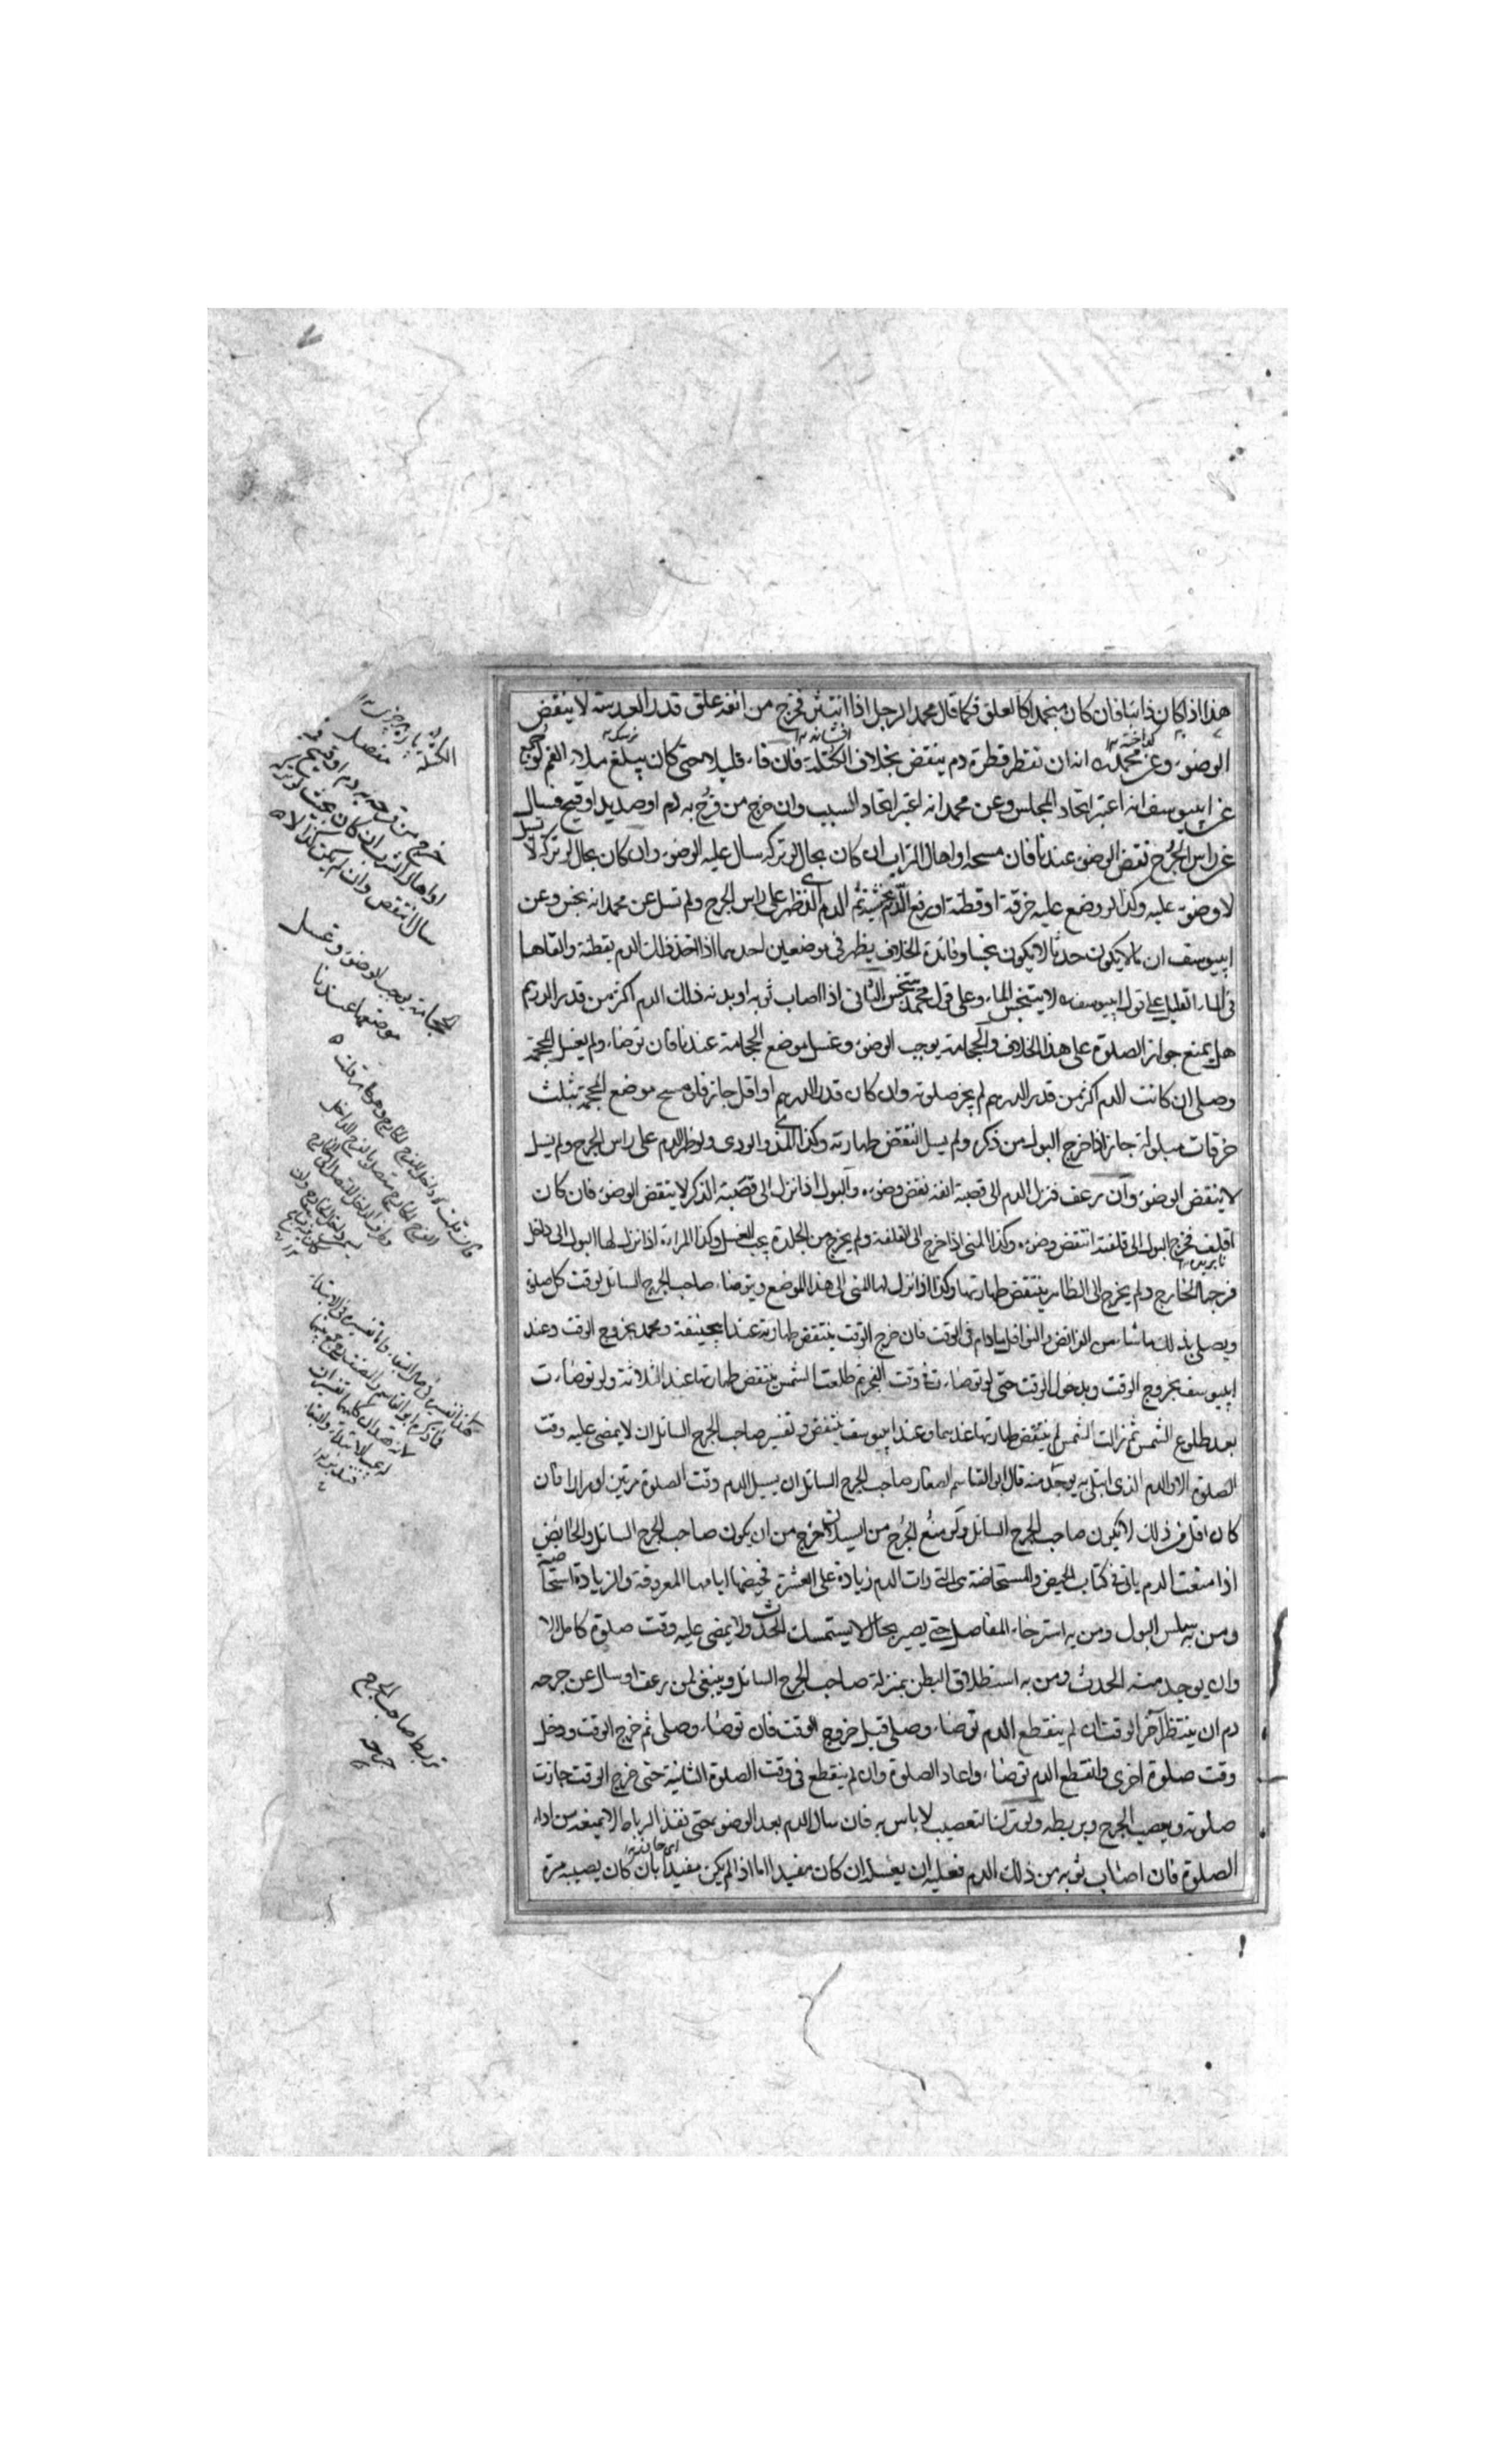 هذا اذا كان ذائبا فان كان منجمدا كالعلق فكما قال محمد الرجل اذا انتثر فخرج من انفه علق قدر العدسة لا ينقض
الوضوء وعن محمد انه ان تقطر قطرة دم ينقض بخلاف الكتلة فان قاء قليلا حتى كان يبلغ ملاء الفم لوجمع
عن ابييوسف انه اعتبر اتحاد المجلس وعن محمد انه اعتبر اتحاد السبب وان خرج من قرح به دم او صديد او قيح فسال
عن راس الجرح نقض الوضوء عندنا فان مسحه او اهال التراب ان كان بحال لو تركه سال عليه الوضوء وان كان بحال لو تركه لا يسيل
لا وضوء عليه وكذا لو وضع عليه خرقة او قطنة او رفع الدم بخشبة ثم الدم الذى ظهر على راس الجرح ولم تسل عن محمد انه نجس وعن
ابييوسف ان ما لا يكون حدثا لا يكون نجسا وفائدة الخلاف يظهر فى موضعين احدهما اذا اخذ ذلك الدم بقطنة والقاها
فى الماء القليل على قول ابييوسف لا يتنجس الماء وعلى قول محمد يتنجس الثانى اذا اصاب ثوبه او بدنه ذلك الدم اكثر من قدر الدرهم
هل يمنع جواز الصلوة على هذا الخلاف والحجامة يوجب الوضوء وغسل موضع الحجامة عندنا فان توضاء ولم يغسل المحجمة
وصلى ان كانت الدم اكثر من قدر الدرهم لم يجز صلوته وان كان قدر الدرهم او اقل جاز فلو مسح موضع المحجمة بثلث
خرقات مبلولة جاز اذا خرج البول من ذكره ولم يسل انتقض طهارته وكذا المذى والودى ولو ظهر الدم على راس الجرح ولم يسل
لا ينقض الوضوء وان رعف فنزل الدم الى قصبة انفه نقض وضوءه والبول اذا نزل الى قصبة الذكر لا ينقض الوضوء فان كان
اقلف فخرج البول الى قلفته انتقض وضوءه وكذا المنى اذا خرج الى القلفة ولم يخرج من الجلدة يجب الغسل وكذا المراءة اذا نزل لها البول الى داخل
فرجها الخارج ولم يخرج الى الظاهر ينتقض طهارتها وكذا اذا نزل لها المنى الى هذا الموضع ويتوضاء صاحب الجرح السائل لوقت كل صلوة
ويصلى بذلك ما شاء من الفرائض والنوافل ما دام فى الوقت فان خرج الوقت ينتقض طهارته عند ابيحنيفة ومحمد بخروج الوقت وعند
ابييوسف بخروج الوقت وبدخول الوقت حتى لو توضاءت فى وقت الفجر ثم طلعت الشمس ينتقض طهارتها عند الثلاثة ولو توضاءت
بعد طلوع الشمس ثم زالت الشمس لم ينتقض طهارتها عندهما وعند ابييوسف ينتقض وتفسير صاحب الجرح السائل ان لا يمضى عليه وقت
الصلوة الا والدم الذى ابتلى به يوجد منه قال ابو القاسم الصفار صاحب الجرح السائل ان يسيل الدم وقت الصلوة مرتين او مرارا فان
كان اقل من ذلك لا يكون صاحب الجرح السائل ولو منع الجرح من السيلان خرج من ان يكون صاحب الجرح السائل والحائض
اذا منعت الدم ياتى فى كتاب الحيض والمستحاضة هى التى رات الدم زيادة على العشرة فحيضها ايامها المعروفة والزيادة استحاضة
ومن به سلس البول ومن به استرخاء المفاصل حتى يصير بحال لا يستمسك الحدث ولا يمضى عليه وقت صلوة كامل الا
وان يوجد منه الحدث ومن به استطلاق البطن بمنزلة صاحب الجرح السائل وينبغى لمن رعف او سال عن جرحه
دم ان ينتظر آخر الوقت فان لم ينقطع الدم توضاء وصلى قبل خروج الوقت فان توضاء وصلى ثم خرج الوقت ودخل
وقت صلوة اخرى وانقطع الدم توضاء واعاد الصلوة وان لم ينقطع فى وقت الصلوة الثانية حتى خرج الوقت جازت
صلوته ويعصب الجرح ويربطه ولو ترك التعصيب لا باس به فان سال الدم بعد الوضوء حتى نفذ الرباط لا يمنعه من اداء
الصلوة فان اصاب ثوبه من ذلك الدم فعليه ان يغسل ان كان مفيدا اما اذا لم يكن مفيدا بان كان يصيبه مرة
خرج من قرحه به دم او قيح
او اهال التراب ان كان بحيث لو تركه
سال انتقض وان لم يكن كذا لا
الحجامة يوجب الوضوء وغسل
موضعها عندنا
تربط صاحب الجرح
جرحه